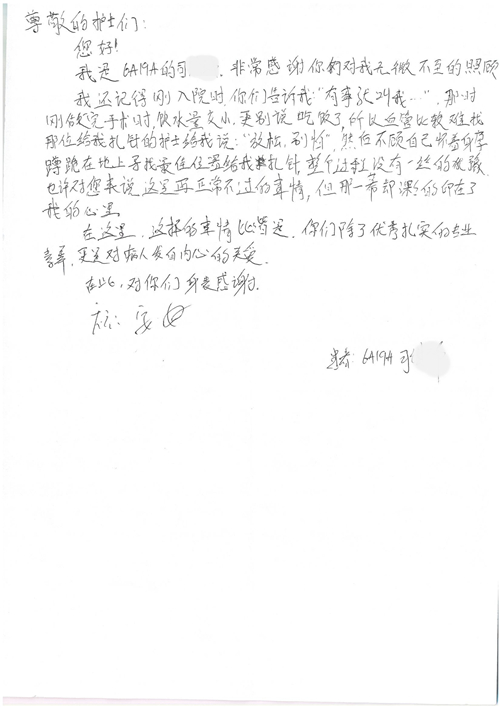 尊敬的护士们:
您好!
我是6A19A的司 非常感谢你们对我无微不至的照顾
我还记得刚入院时,你们告诉我"有事就叫我…",那时
刚做完手术时,饮水量又小,更别说吃饭了,所以血管比较难找
那位给我扎针的护士给我说:"放松,别怕",然后不顾自己怀着身孕
蹲跪在地上寻找最佳位置给我扎针,整个过程没有一丝的
也许对您来说,这是再正常不过的事情,但那一幕却深深的印在了
我的心里
在这里,这样的事情比皆是.你们除了优秀扎实的专业
更是对病人发自内心的关爱
在此,对你们身表感谢.
祝:安
患者: 6A19A 司